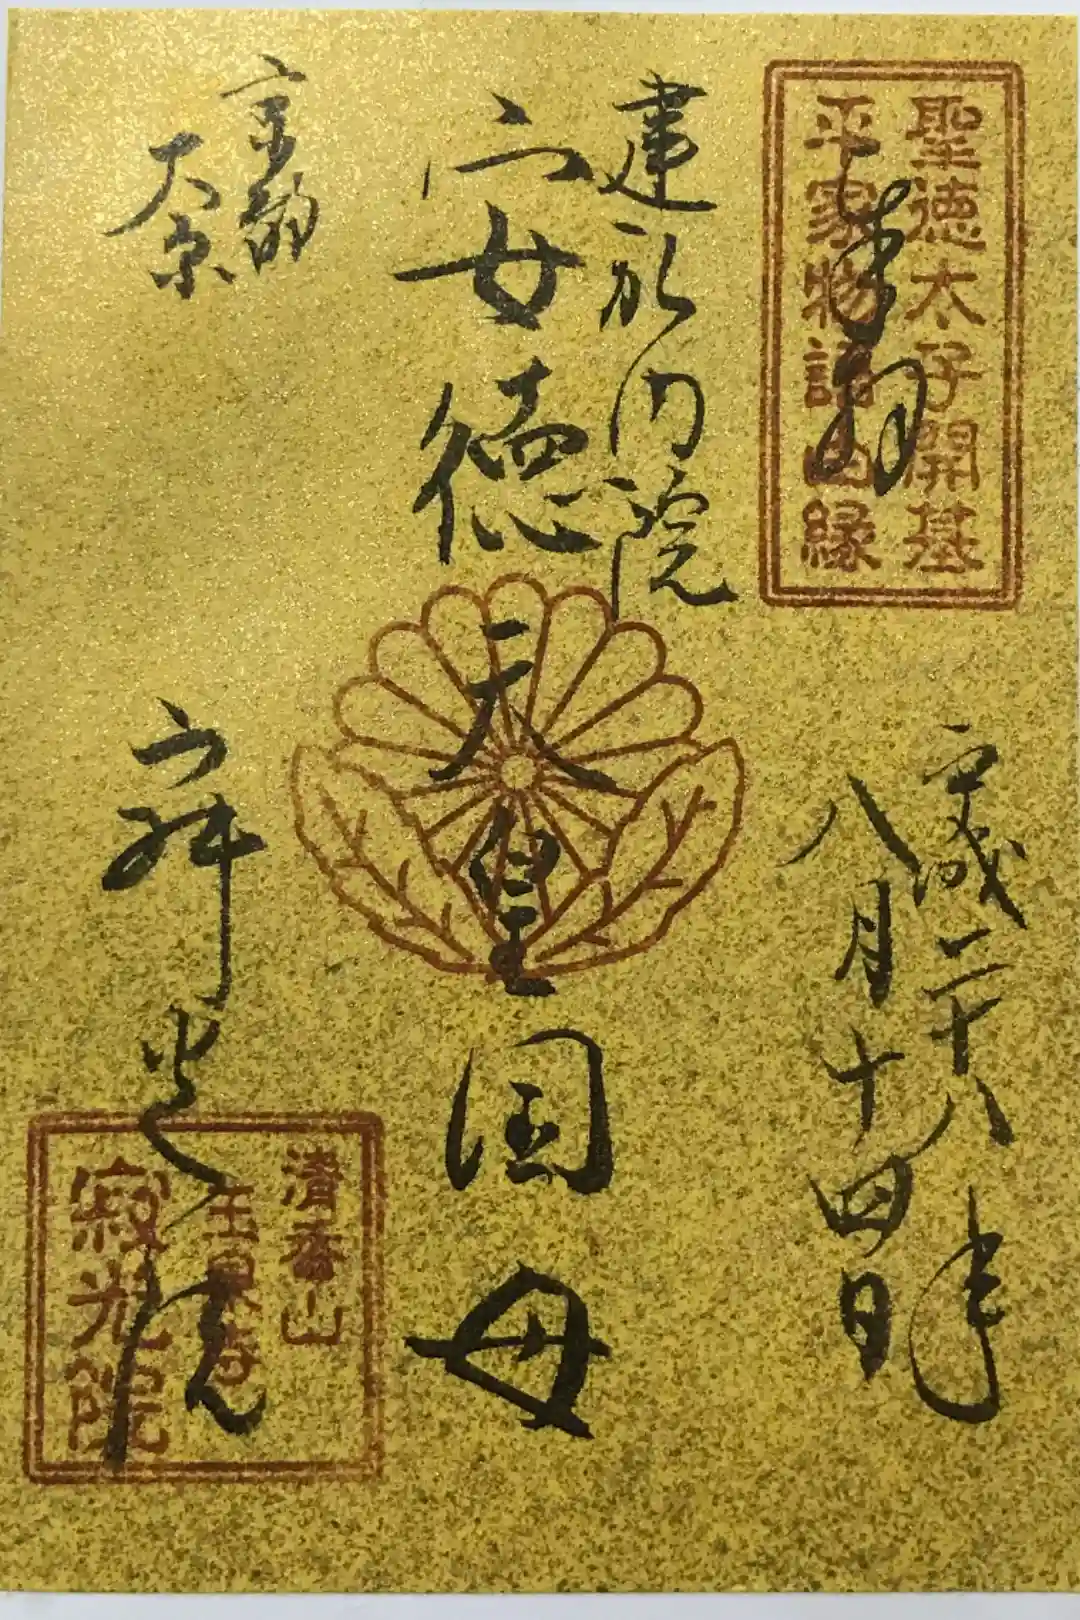 聖徳太子開基
平家物語由縁
奉拝
平成二十八年
八月十四日
建礼門院
安徳天皇国母
京都
大原
寂光院
清香山
玉泉寺
寂光院